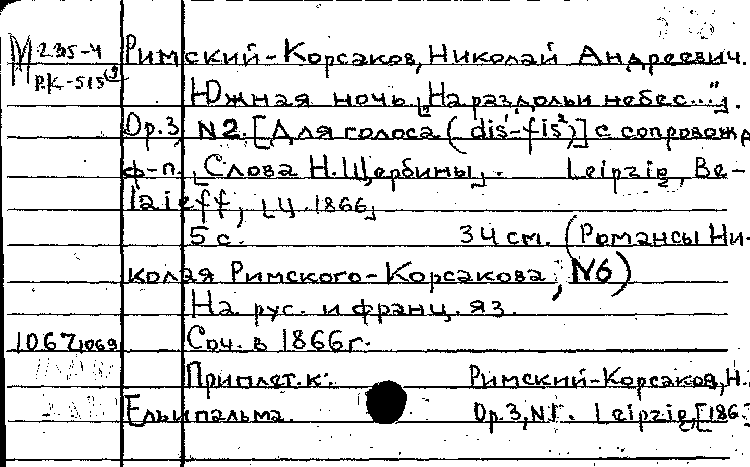 М 235-4 Римский-Корсаков, Николай Андреевич.
Р.К.-515
Южная ночь „На раздольи небес..."
Op.3, N2. [Для голоса (dis¹-fis²)] с сопровожд
ф-п. [Слова Н. Щербины]. Leipzig, Be-
laieff, [ц. 1866]
5 с. 34 см. (Романсы Ни-
колая Римского-Корсакова, N6)
На рус. и франц. яз.
1067/1069 Соч. в 1866г.
Приплет. к: Римский-Корсаков, Н.
Ель и пальма. Op.3, N1. Leipzig, [186.